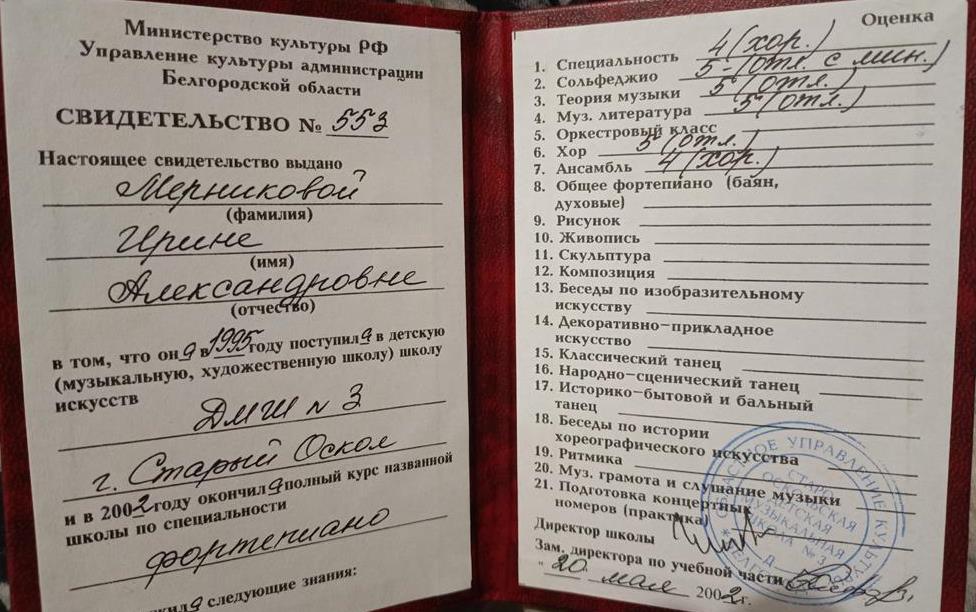 Министерство культуры РФ
Управление культуры администрации
Белгородской области
СВИДЕТЕЛЬСТВО № 553
Настоящее свидетельство выдано
Мерниковой
(фамилия)
Ирине
(имя)
Александровне
(отчество)
в том, что он а в 1995 году поступил а в детскую
(музыкальную, художественную школу) школу
искусств
ДМШ № 3
г. Старый Оскол
и в 2002 году окончил а полный курс названной
школы по специальности
фортепиано
следующие знания:
Оценка
1. Специальность 4 (хор.)
2. Сольфеджио 5- (отл. с мин.)
3. Теория музыки 5 (отл.)
4. Муз. литература 5 (отл.)
5. Оркестровый класс
6. Хор 5 (отл.)
7. Ансамбль 4 (хор.)
8. Общее фортепиано (баян,
духовые)
9. Рисунок
10. Живопись
11. Скульптура
12. Композиция
13. Беседы по изобразительному
искусству
14. Декоративно-прикладное
искусство
15. Классический танец
16. Народно-сценический танец
17. Историко-бытовой и бальный
танец
18. Беседы по истории
хореографического искусства
19. Ритмика
20. Муз. грамота и слушание музыки
21. Подготовка концертных
номеров (практика)
Директор школы
Зам. директора по учебной части
" 20 мая 2002 г.